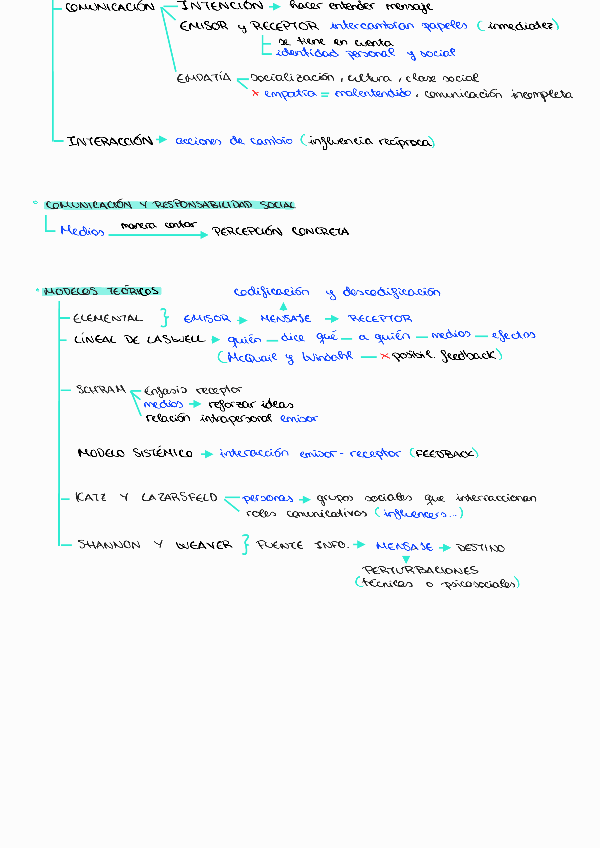 COMUNICACIÓN INTENCIÓN → hacer entender mensaje
EMISOR y RECEPTOR intercambian papeles (inmediatez)
se tiene en cuenta
identidad personal y social
EMPATÍA socialización, cultura, clase social
x empatía = malentendido, comunicación incompleta
INTERACCIÓN → acciones de cambio (influencia recíproca)
° COMUNICACIÓN Y RESPONSABILIDAD SOCIAL
Medios manera contar → PERCEPCIÓN CONCRETA
* MODELOS TEÓRICOS codificación y descodificación
ELEMENTAL } EMISOR → MENSAJE → RECEPTOR
LÍNEAL DE LASWELL → quién — dice qué — a quién — medios — efectos
(McQuail y Windahl — x posibil. feedback)
SCHRAM énfasis receptor
medios → reforzar ideas
relación intrapersonal emisor
MODELO SISTÉMICO → interacción emisor - receptor (FEEDBACK)
KATZ Y LAZARSFELD personas → grupos sociales que interraccionan
roles comunicativos (influencers...)
SHANNON Y WEAVER } FUENTE INFO. → MENSAJE → DESTINO
PERTURBACIONES
(técnicas o psicosociales)